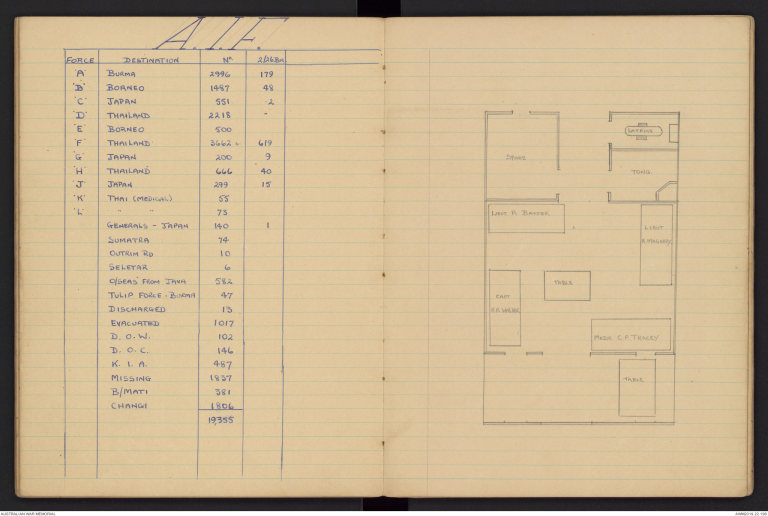 A.I.F.
FORCE DESTINATION No. 2/26 Bn.
'A' BURMA 2996 179
'B' BORNEO 1487 48
'C' JAPAN 551 2
'D' THAILAND 2218 -
E BORNEO 500
F THAILAND 3662 619
'G' JAPAN 200 9
'H' THAILAND 666 40
'J' JAPAN 299 15
'K' THAI (MEDICAL) 55
'L' " " 73
GENERALS - JAPAN 140 1
SUMATRA 74
OUTRIM RD 10
SELETAR 6
O/SEAS FROM JAVA 582
TULIP FORCE - BURMA 47
DISCHARGED 13
EVACUATED 1017
D. O. W. 102
D. O. C. 146
K. I. A. 487
MISSING 1837
B/MATI 381
CHANGI 1806
19,355
LATRINE
STORE
TONG
LIEUT R.
LIEUT
TABLE
CAPT
MAJOR C.P. TRACEY
TABLE
AUSTRALIAN WAR MEMORIAL